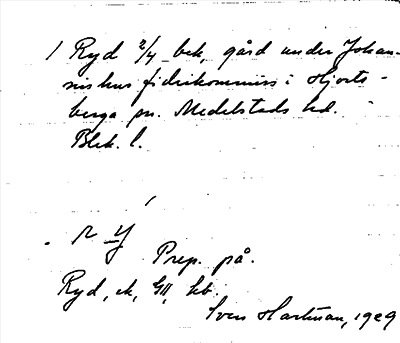 1 Ryd 2/4 bek, gård under Johan-
nishus fideikommiss i Hjorts-
berga sn. Medelstads hd.
Blek. l.
Prep. på.
Ryd, ek, GII, kb.
Sven Hartman, 1929